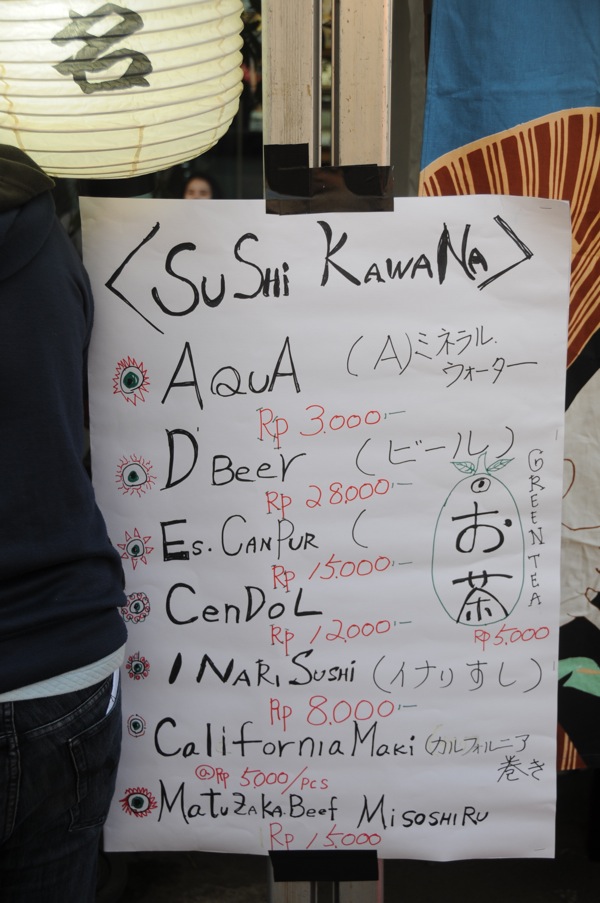 名
<SuSHi KawaNa>
AQUA (A)ミネラル.
ウォーター
Rp 3.000,-
D' Beer (ビール)
Rp 28.000,-
Es. CANPUR (
Rp 15.000,-
CenDoL
Rp 12.000,-
お茶
GREEN TEA
Rp 5.000
INARI SUSHI (イナリすし)
Rp 8.000,-
California Maki (カルフォルニア
巻き
@Rp 5000/pcs
MatuZAKA.Beef MISOSHIRU
Rp 15.000